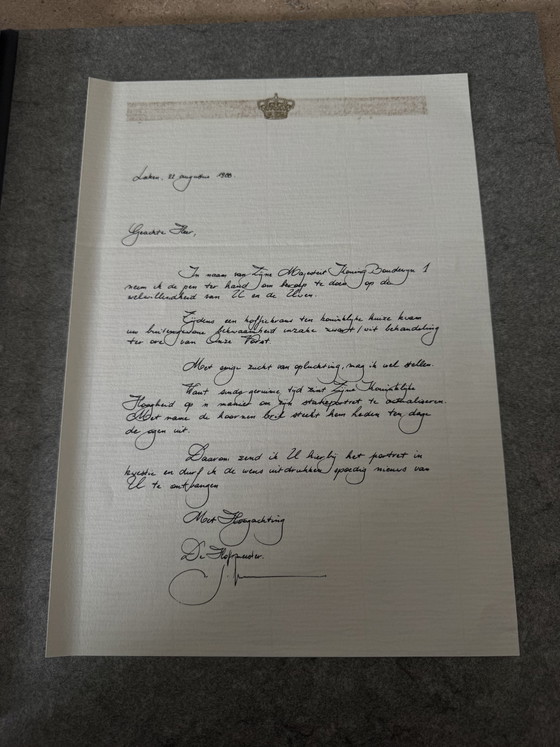 Laken, 22 augustus 1988.
Geachte Heer,
In naam van Zijne Majesteit Koning Boudewijn I
neem ik de pen ter hand om beroep te doen op de
welwillendheid van U en de Uwen.
Tijdens een koffiekrans ten koninklijke huize kwam
uw buitengewone bekwaamheid inzake zwart/wit behandeling
ter ore van Onze Vorst.
Met enige zucht van opluchting, mag ik wel stellen.
Want sinds geruime tijd zint Zijne Koninklijke
Hoogheid op 'n manier om zijn staatsportret te actualiseren.
Met name de hoornen bril steekt hem heden ten dage
de ogen uit.
Daarom zend ik U hierbij het portret in
kwestie en durf ik de wens uitdrukken spoedig nieuws van
U te ontvangen
Met Hoogachting
De Hofmeester.